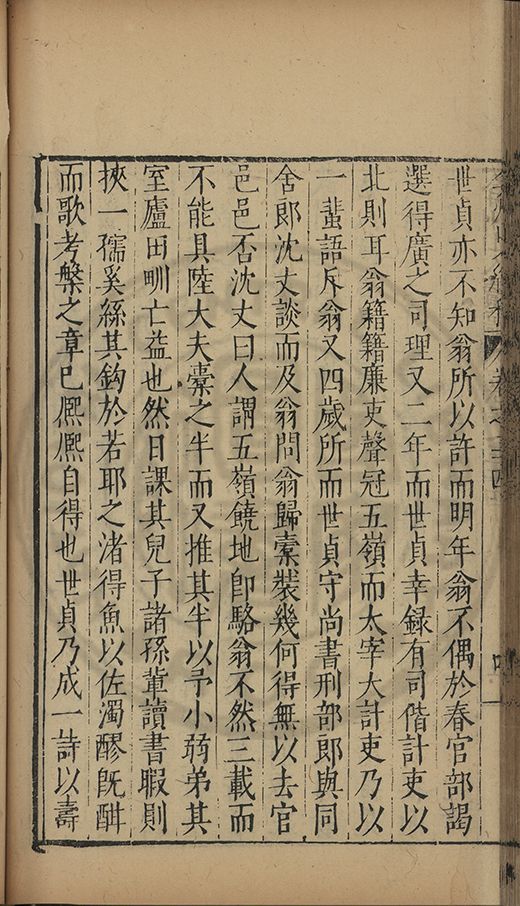 世貞亦不知翁所以許而明年翁不偶於春官部謁
選得廣之司理又二年而世貞幸録有司偕計吏以
北則耳翁籍籍廉吏聲冠五嶺而太宰大計吏乃以
一蜚語斥翁又四歲所而世貞守尚書刑部郎與同
舍郎沈丈談而及翁問翁歸橐裝幾何得無以去官
邑邑否沈丈曰人謂五嶺饒地卽駱翁不然三載而
不能具陸大夫橐之半而又推其半以予小弱弟其
室廬田畎亡益也然日課其兒子諸孫輩讀書暇則
挾一孺奚絲其鈎於若耶之渚得魚以佐濁醪旣酣
而歌考槃之章已熈熈自得也世貞乃成一詩以壽